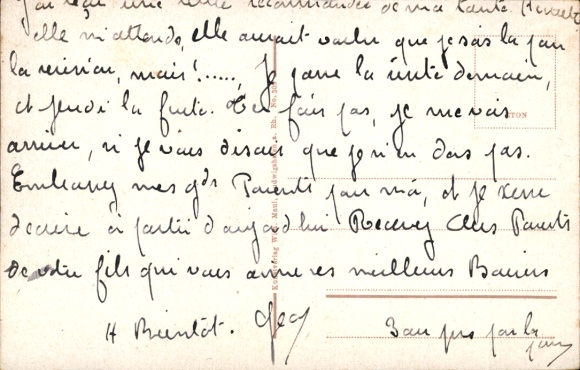 j'ai reçu une lettre recommandée de ma tante
elle m'attends, elle aurait voulu que je sois la pour
la reunion, mais!....., Je passe la visite demain,
et jeudi la fuite. Ten fais pas, je me vois
arriver, si je vous disais que je n'en dors pas.
Embrassez mes gds Parents pour moi, et je cesse
decrire à partir d'aujourd'hui Recevez Chers Parents
de votre fils qui vous aime ses meilleurs Baisers
A Bientôt. Geo
3 ou pas par la
Kunstverlag W. Maul, Ludwigshafen a. Rh. No.